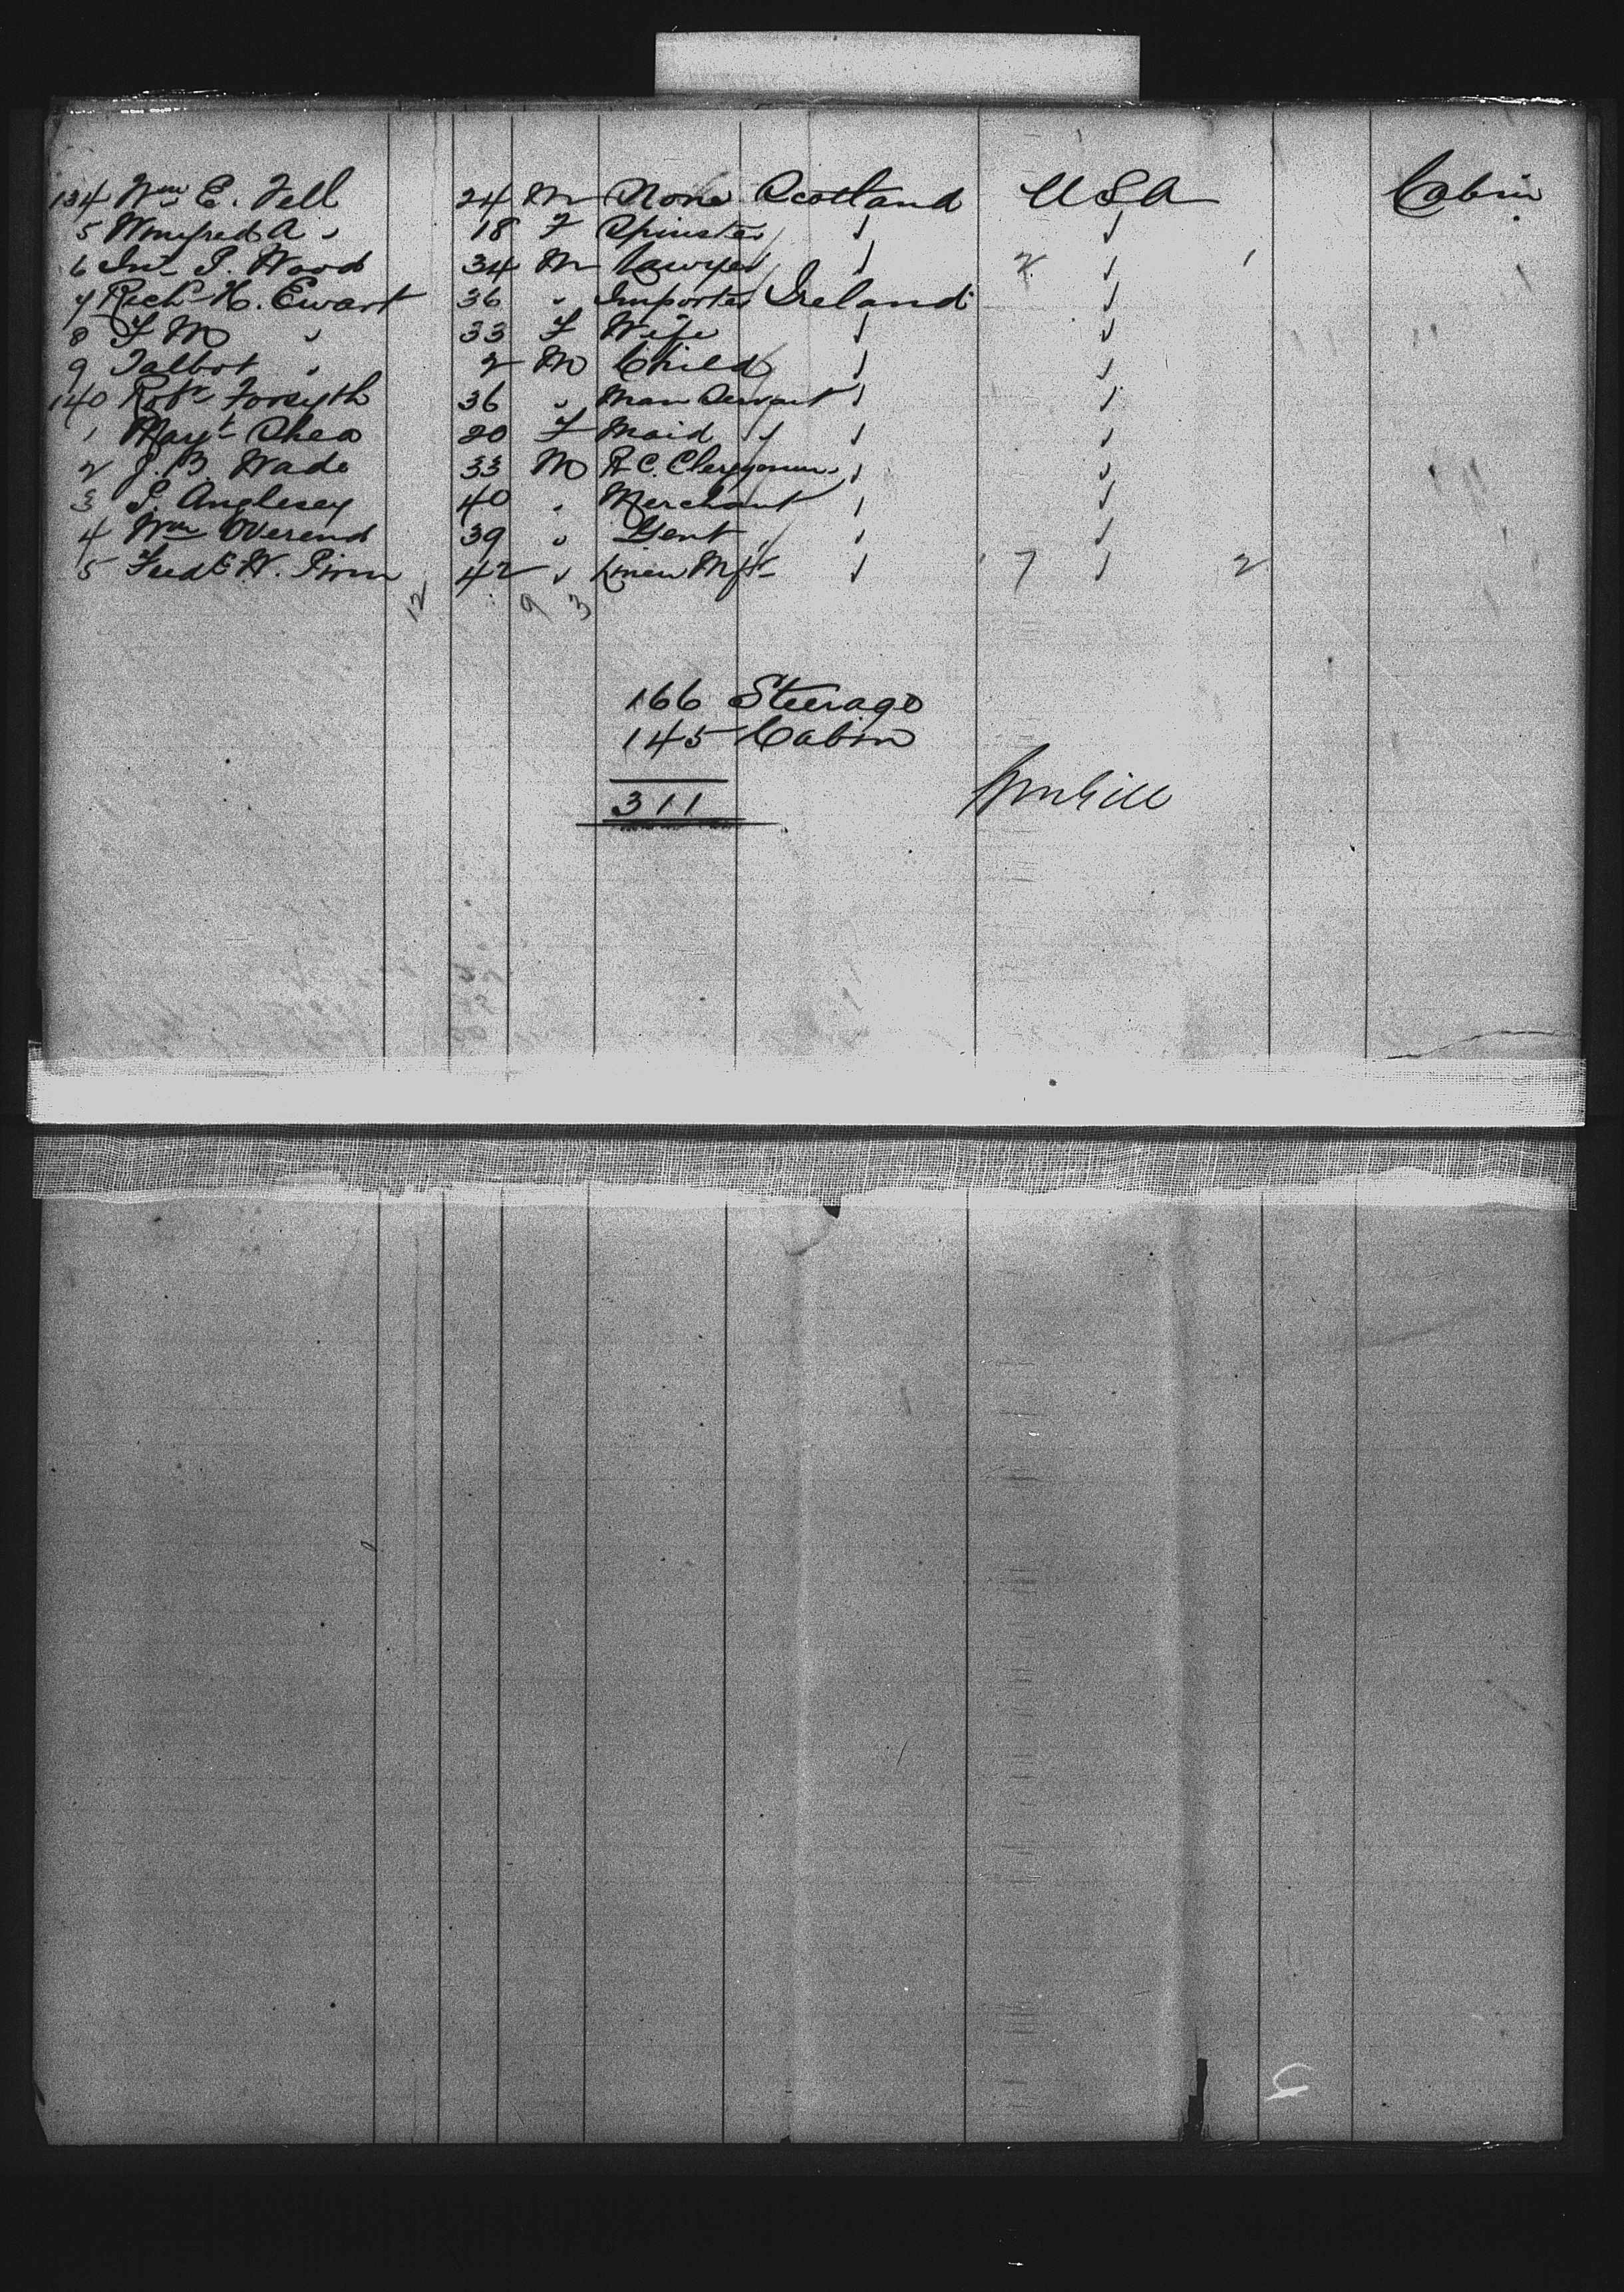 134 Wm E. Fell 24 M None Scotland USA Cabin
5 Winifred A " 18 F Spinster " "
6 Jno P. Wood 34 M Lawyer " 2 " 1
7 Richd H. Ewart 36 " Importer Ireland "
8 F M " 33 F Wife " "
9 Talbot " 2 M Child " "
140 Robt Forsyth 36 " Man Servant " "
1 Mary Shea 20 F Maid " " "
2 J. B. Wade 33 M R.C. Clergyman " "
3 P. Anglesey 40 " Merchant " "
4 Wm Overend 39 " Gent " "
5 Fredk W. Pim 42 " Linen Mfr " 7 " 2
12 9 3
166 Steerage
145 Cabin
311